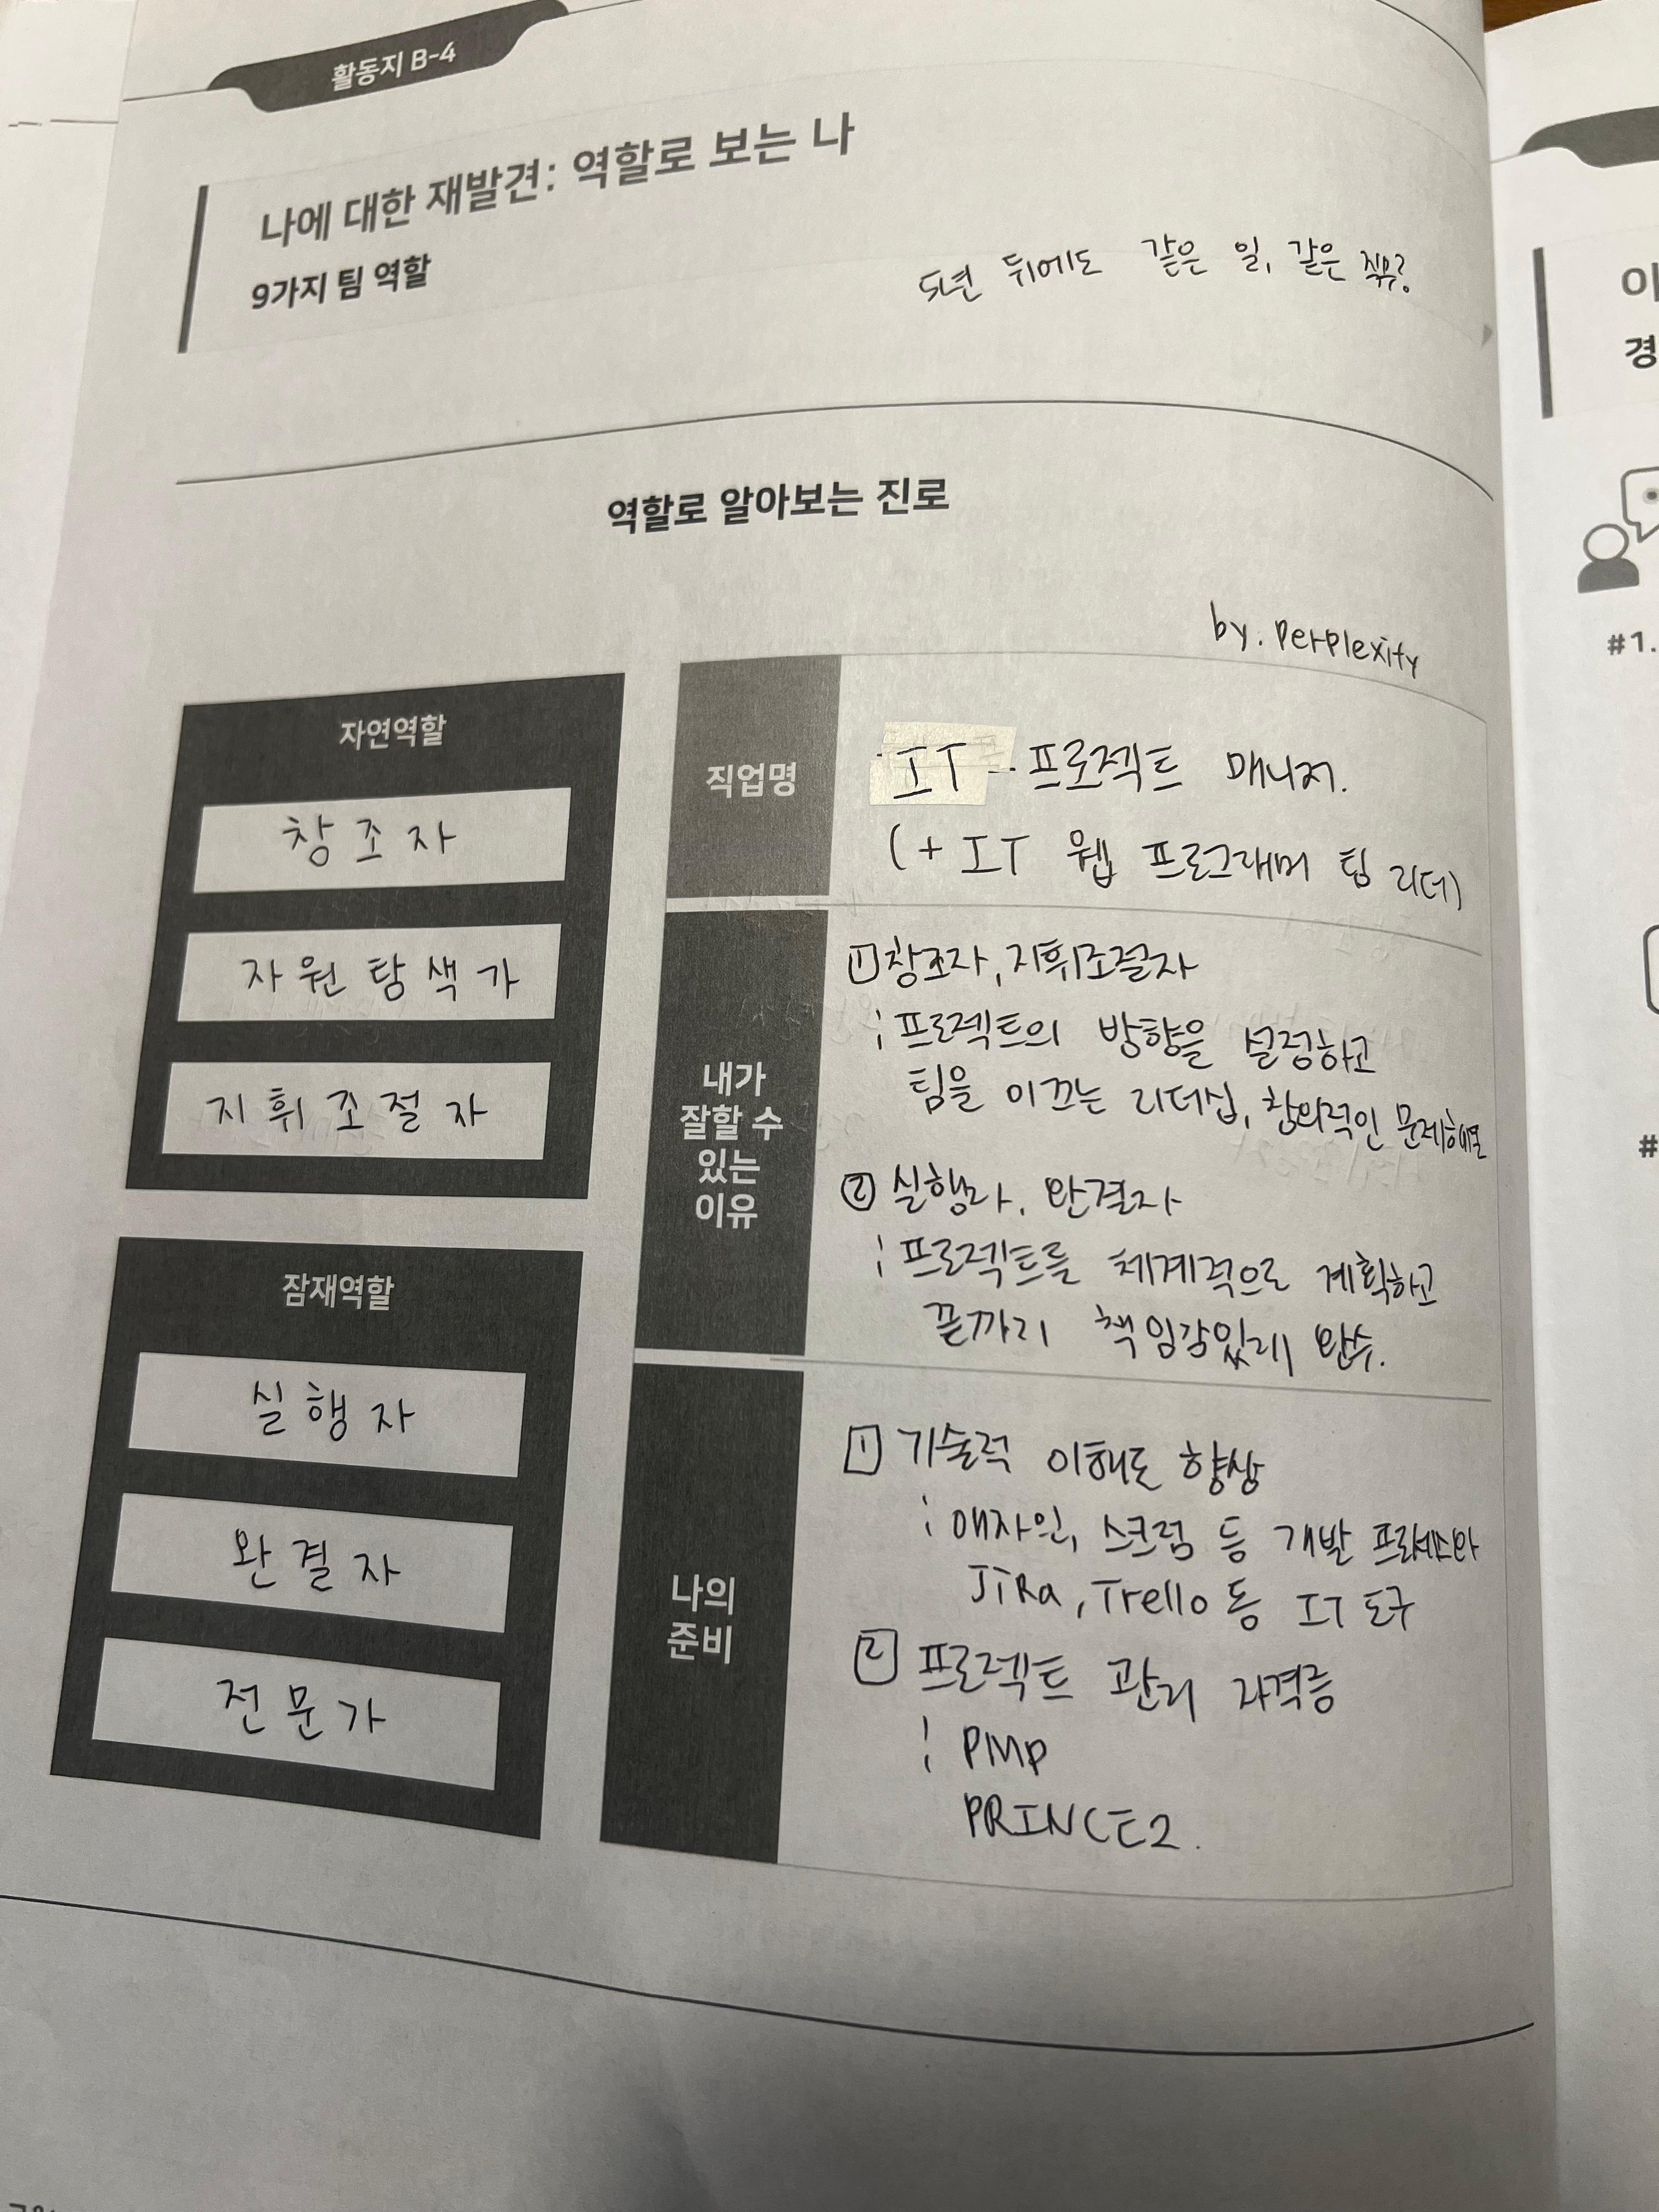 활동지 B-4
나에 대한 재발견: 역할로 보는 나
9가지 팀 역할
5년 뒤에도 같은 일, 같은 직무?
역할로 알아보는 진로
by. Perplexity
자연역할
창조자
자원탐색가
지휘조절자
잠재역할
실행자
완결자
전문가
직업명
IT 프로젝트 매니저.
(+ IT 웹 프로그래머 팀 리더)
내가
잘할 수
있는
이유
1 창조자, 지휘조절자
; 프로젝트의 방향을 설정하고
팀을 이끄는 리더십, 창의적인 문제해결
② 실행자, 완결자
; 프로젝트를 체계적으로 계획하고
끝까지 책임감있게 완수.
나의
준비
1 기술적 이해도 향상
; 애자일, 스크럼 등 개발 프로세스와
JIRa, Trello 등 IT 도구
2 프로젝트 관리 자격증
; PMP
PRINCE2.
이
경
#1.
#